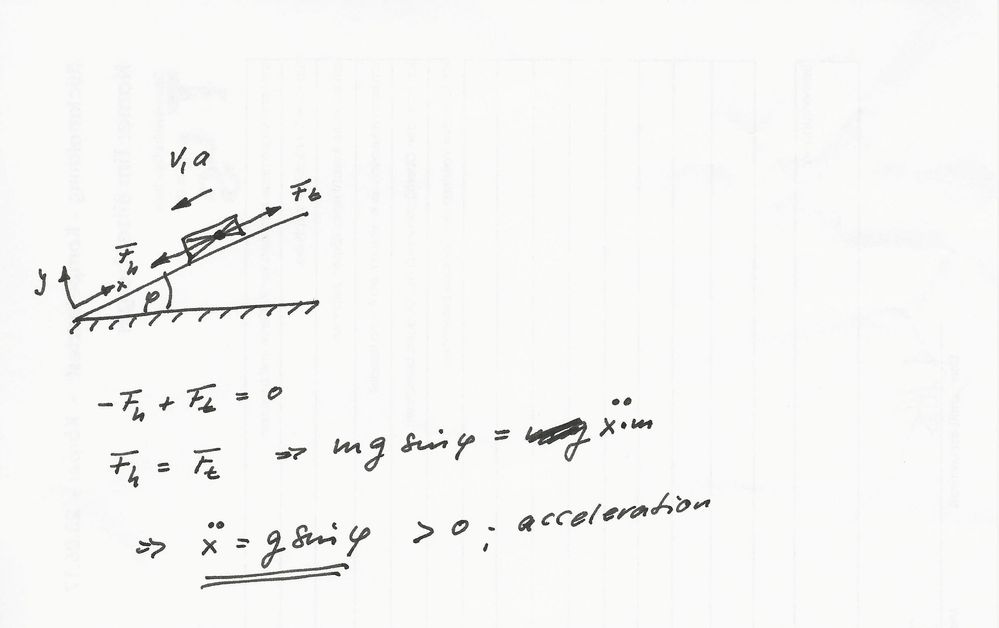 v, a
F̅t
F̅h
y
x
φ
-F̅h + F̅t = 0
F̅h = F̅t ⇒ mg sinφ = ẍ·m
⇒ ẍ = g sinφ > 0 ; acceleration